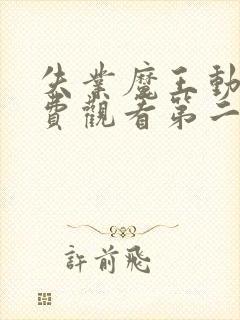 失業魔王動
費觀看第二
許前飛